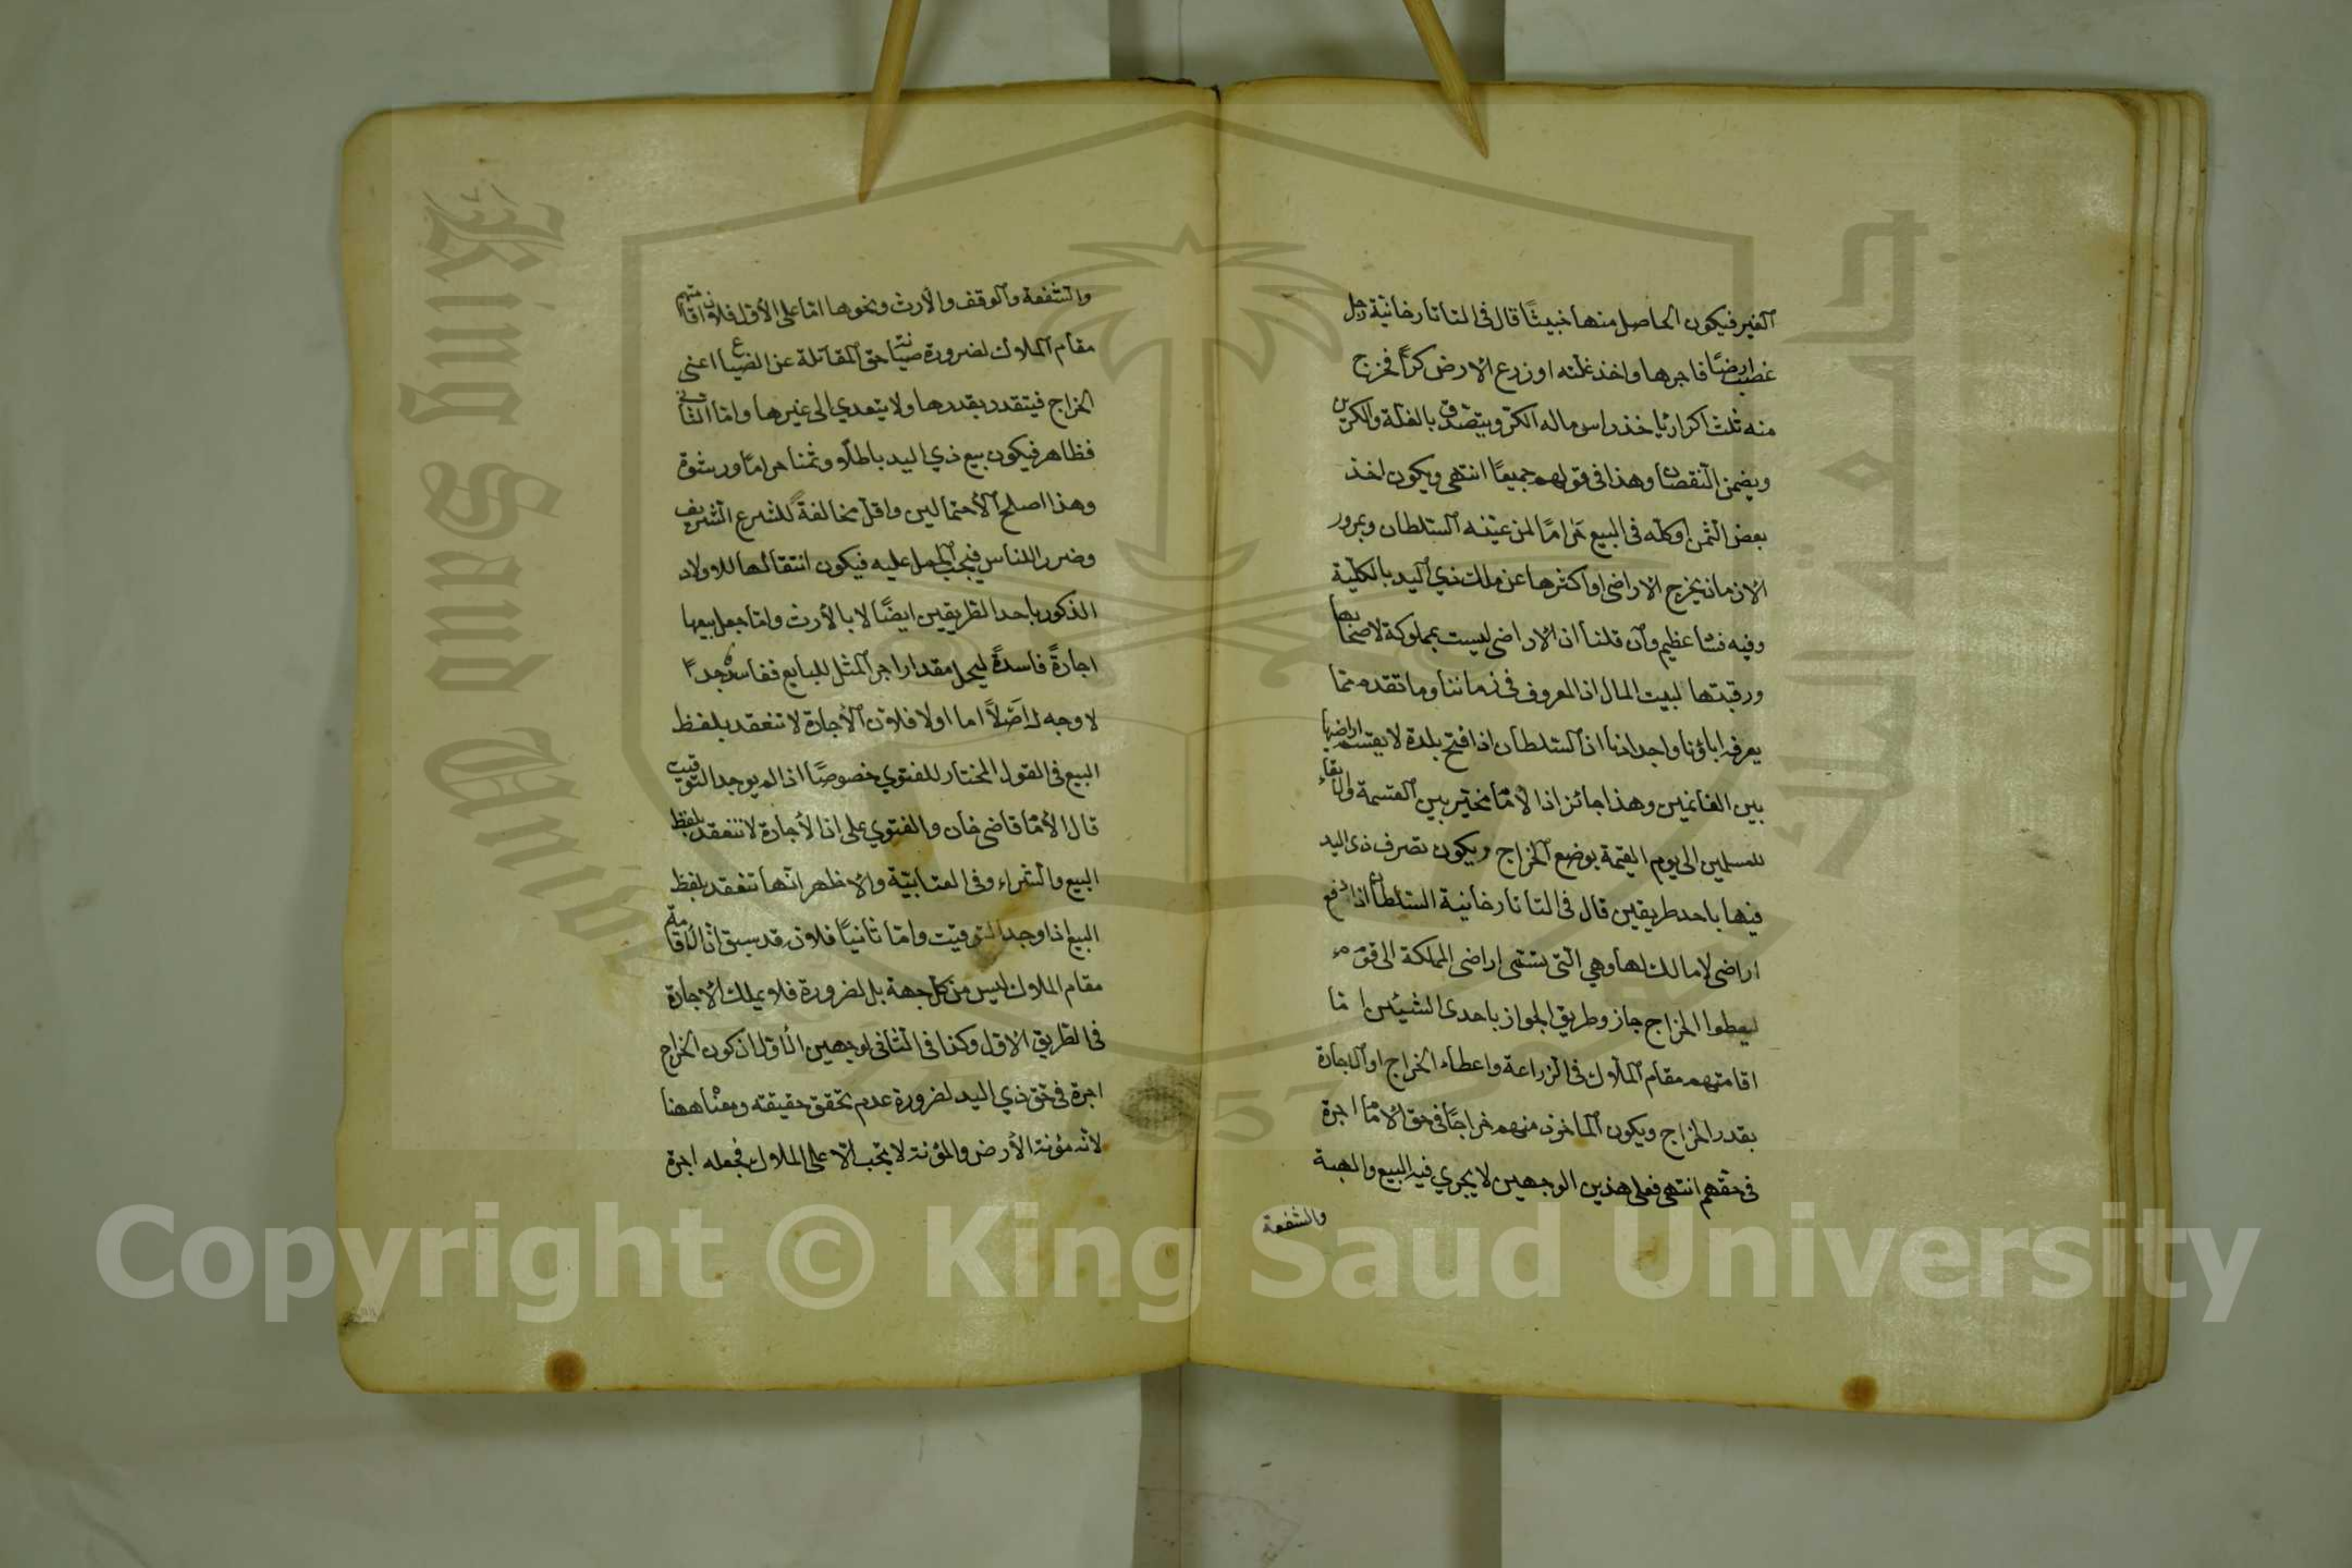 الغير فيكون الحاصل منها خبيثًا قال في التاتارخانية رجل
غصب ارضًا فاجرها واخذ غلته او زرع الارض كرًّا فخرج
منه ثلث اكرار يأخذ راس ماله الكرّ ويتصّدق بالغلة والكرين
ويضمن النقصان وهذا في قولهم جميعًا انتهى ويكون اخذ
بعض الثمن او كله في البيع حَرامًا لمن عيّنه السّلطان وبمرور
الازمان يخرج الاراضي او اكثرها عن ملك ذي اليد بالكلّية
وفيه فساد عظيم وان قلنا ان الاراضي ليست بمملوكة لاصحابها
ورقبتها لبيت المال اذ المعروف في زماننا وما تقدمه ممّا
يعرفه اباؤنا واجدادنا ان السّلطان اذا فتح بلدة لا يقسم اراضيها
بين الغانمين وهذا جائز اذ الامام مخيّر بين القسمة والابقاء
للمسلمين الى يوم القيمة بوضع الخراج ويكون تصرف ذي اليد
فيها باحد طريقين قال في التاتارخانية السّلطان اذا دفع
اراضي لا مالك لها وهي الّتي تسمّى اراضي المملكة الى قوم
ليعطوا الخراج جاز وطريق الجواز باحدى الشيئين امّا
اقامتهم مقام الملّاك في الزراعة واعطاء الخراج او الاجارة
بقدر الخراج ويكون الماخوذ منهم خراجًا في حق الامام اجرة
في حقهم انتهى فعلى هذين الوجهين لا يجري فيه البيع والهبة
والشفعة
والشفعة والوقف والارث ونحوها امّا على الاوّل فلان اقامتهم
مقام الملّاك لضرورة صيانة حق المقاتلة عن الضياع اعني
الخراج فيتقدر بقدرها ولا يتعدي الى غيرها وامّا الثاني
فظاهر فيكون بيع ذي اليد باطلًا وثمنا حرامًا ورشوة
وهذا اصلح الاحتمالين واقلّ مخالفةً للشرع الشريف
وضرر الناس فيجب الحمل عليه فيكون انتقالها للاولاد
الذكور باحد الطريقين ايضًا لا بالارث وامّا جعل بيعها
اجارةً فاسدةً ليحل مقدار اجر المثل للبايع ففاسد جدًا
لا وجه له اصلًا اما اولا فلان الاجارة لا تنعقد بلفظ
البيع في القول المختار للفتوي خصوصًا اذا لم يوجد التوقيت
قال الامام قاضي خان والفتوي على ان الاجارة لا تنعقد بلفظ
البيع والشراء وفي العتابيّة والاظهر انّها تنعقد بلفظ
البيع اذا وجد التوقيت وامّا ثانيًا فلان قد سبق انّ الاقامة
مقام الملاك ليس من كلّ جهة بل لضرورة فلا يملك الاجارة
في الطريق الاوّل وكذا في الثاني لوجهين الاوّل ان كون الخراج
اجرة في حق ذي اليد لضرورة عدم تحقق حقيقته ومعناه ههنا
لانّه مؤنة الارض والمؤنة لا تجب الّا على الملاك فجعله اجرة
Copyright © King Saud University
King Saud University
1957